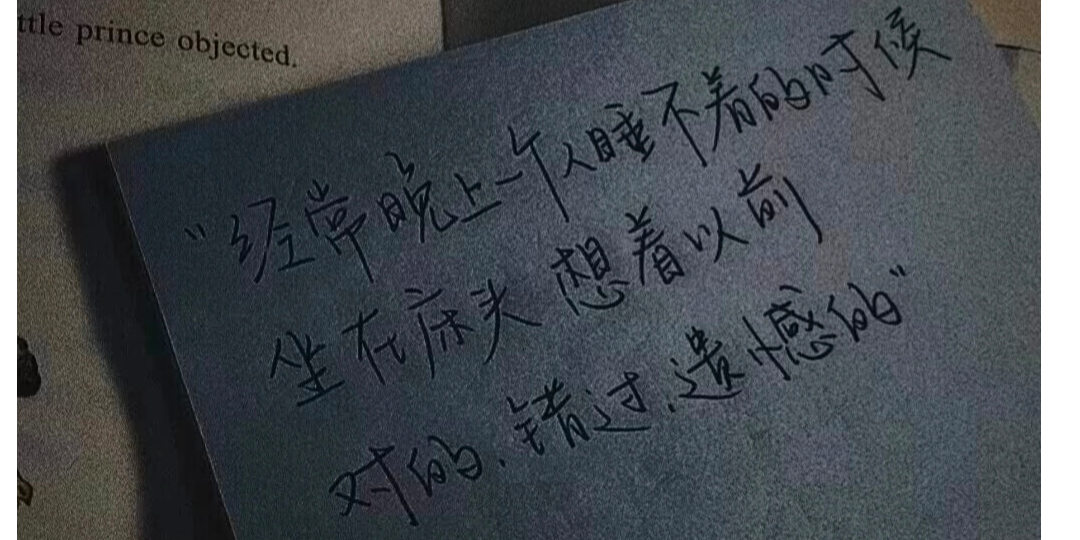 ttle prince objected.
“经常晚上一个人睡不着的时候
坐在床头 想着以前
对的.错过.遗憾的”